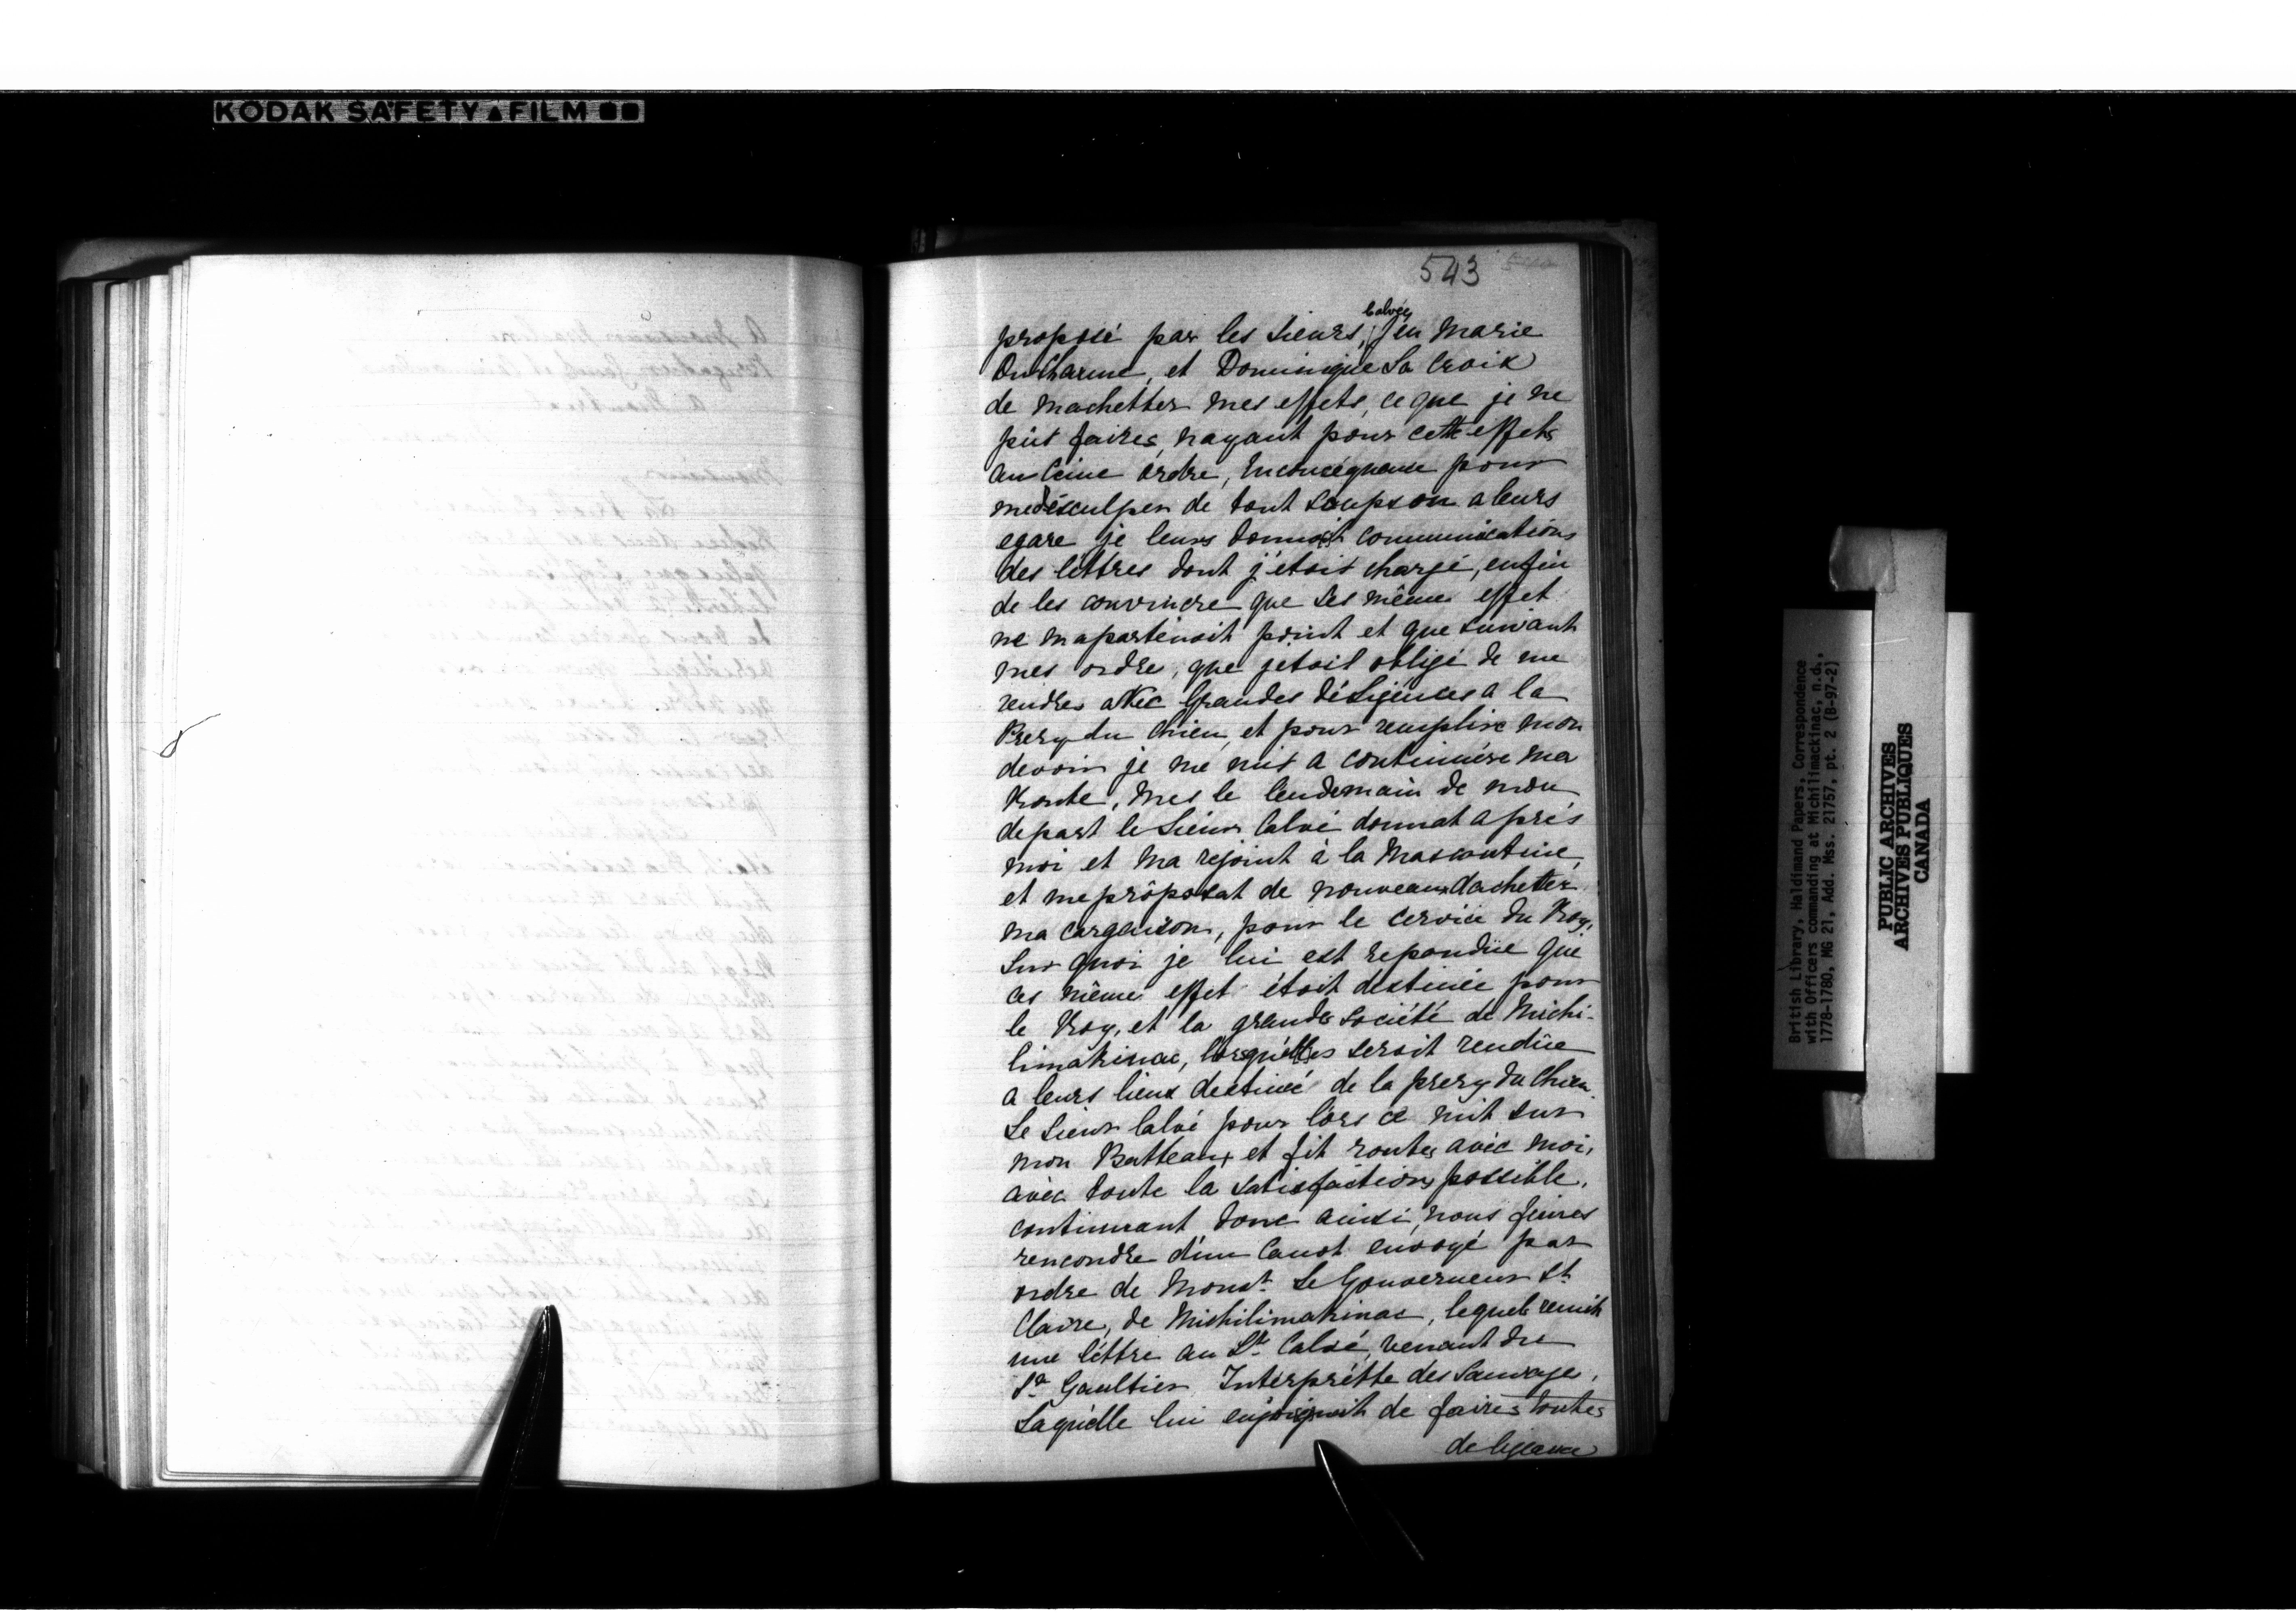 KODAK SAFETY FILM
543
Calvéy
proposé par les Sieurs, Jen Marie
DuCharme, et Dominique La Croix
de machetter mes effets, ce que je ne
pùt faires, nayant pour cette effets
au Ceine ordre, Enconcéquence pour
me désculper de tout soupson a leurs
egare je leurs donnoit communications
des léttres dont j'étoit chargé, enfin
de les convincre que ses même effet
ne mapartenoit point et que suivant
mes ordre, que jetoit obligé de me
rendres avec Grandes déligences a la
Prery du Chien, et pour remplire mon
devoir je me mit a continuére ma
Route, Mes le lendemain de mon
depart le Sieur Calvé donnat aprés
moi et ma rejoint à la Mascoutine,
et me prôposat de nouveaux dachetter
ma Cargaison, pour le Cervice du Roy,
Sur quoi je lui est repondüe que
ces même effet étoit destinée pour
le Roy, et la grandes société de Michi-
limakinac, lorsquélles seroit rendüe
a leurs lieux destinée de la prery du Chien.
Le Sieur Calvé pour lors ce mit sur
mon Batteaux et fit routes avéc moi,
avéc toute la satisfactions possible,
continuant donc ainsi, nous fimes
rencondre d'un Canot envoyé par
ordre de Monsr. Le Gouverneur St.
Claire, de Michilimakinac, lequels remit
une léttre au Sr. Calvé, venant du
Sr. Gaultier Intérpréte des Sauvage,
Laquélle lui enjoignoit de faires toutes
deligence
British Library, Haldimand Papers, Correspondence
with Officers commanding at Michilimackinac, n.d.,
1778-1780, MG 21, Add. Mss. 21757, pt. 2 (B-97-2)
PUBLIC ARCHIVES
ARCHIVES PUBLIQUES
CANADA